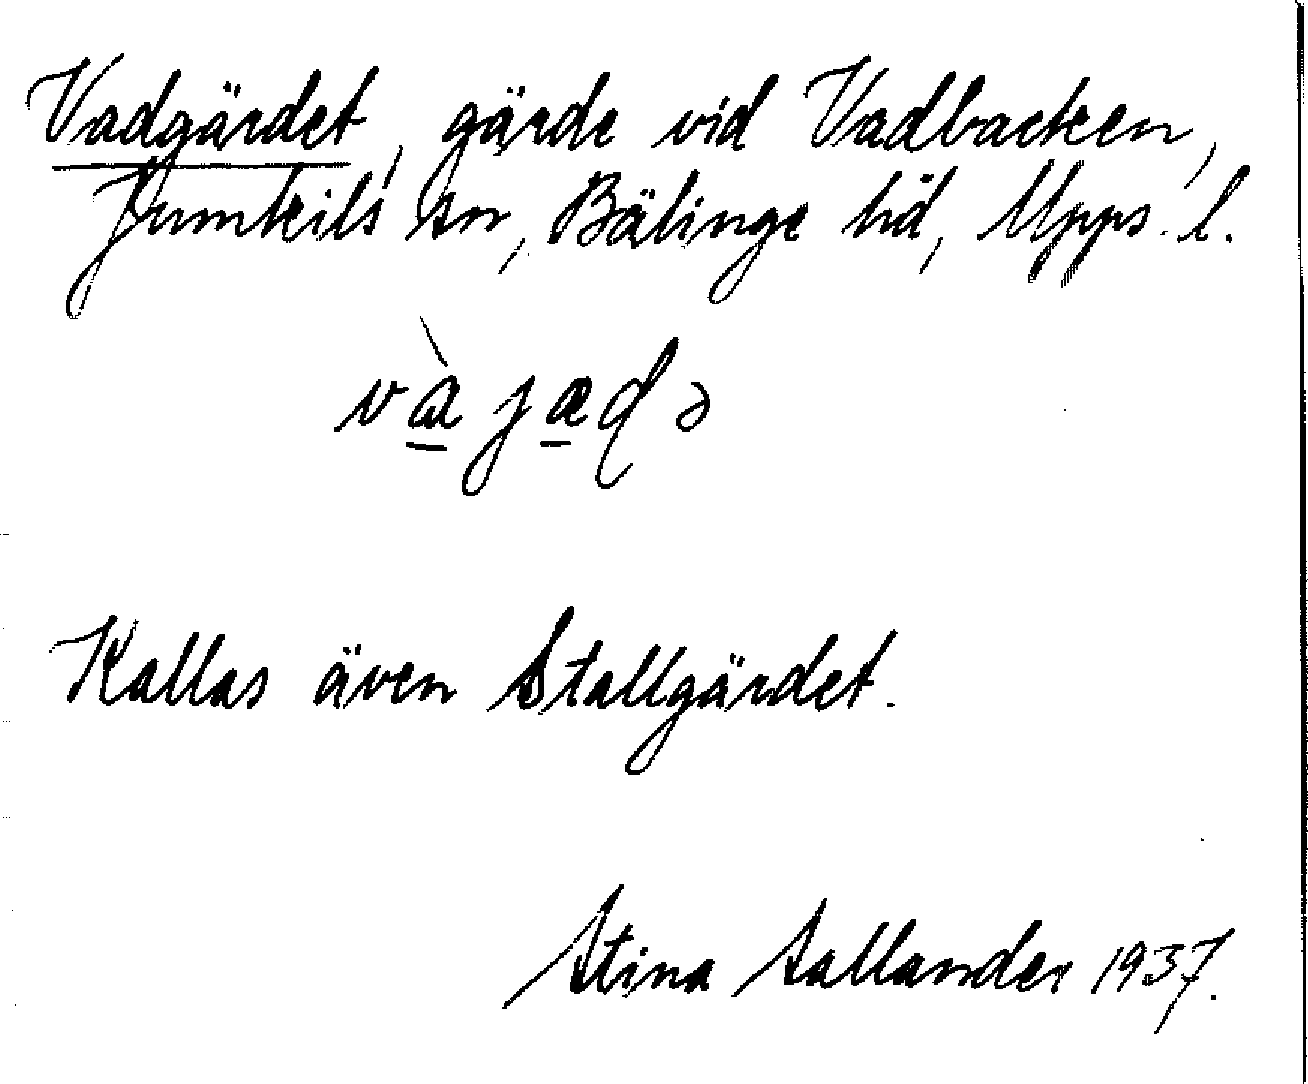 Vadgärdet, gärde vid Vadbacken,
Jumkils sn, Bälinge hd, Upps. l.
và̱jæ̱ɖə
Kallas även Stallgärdet.
Stina Sallander 1937.